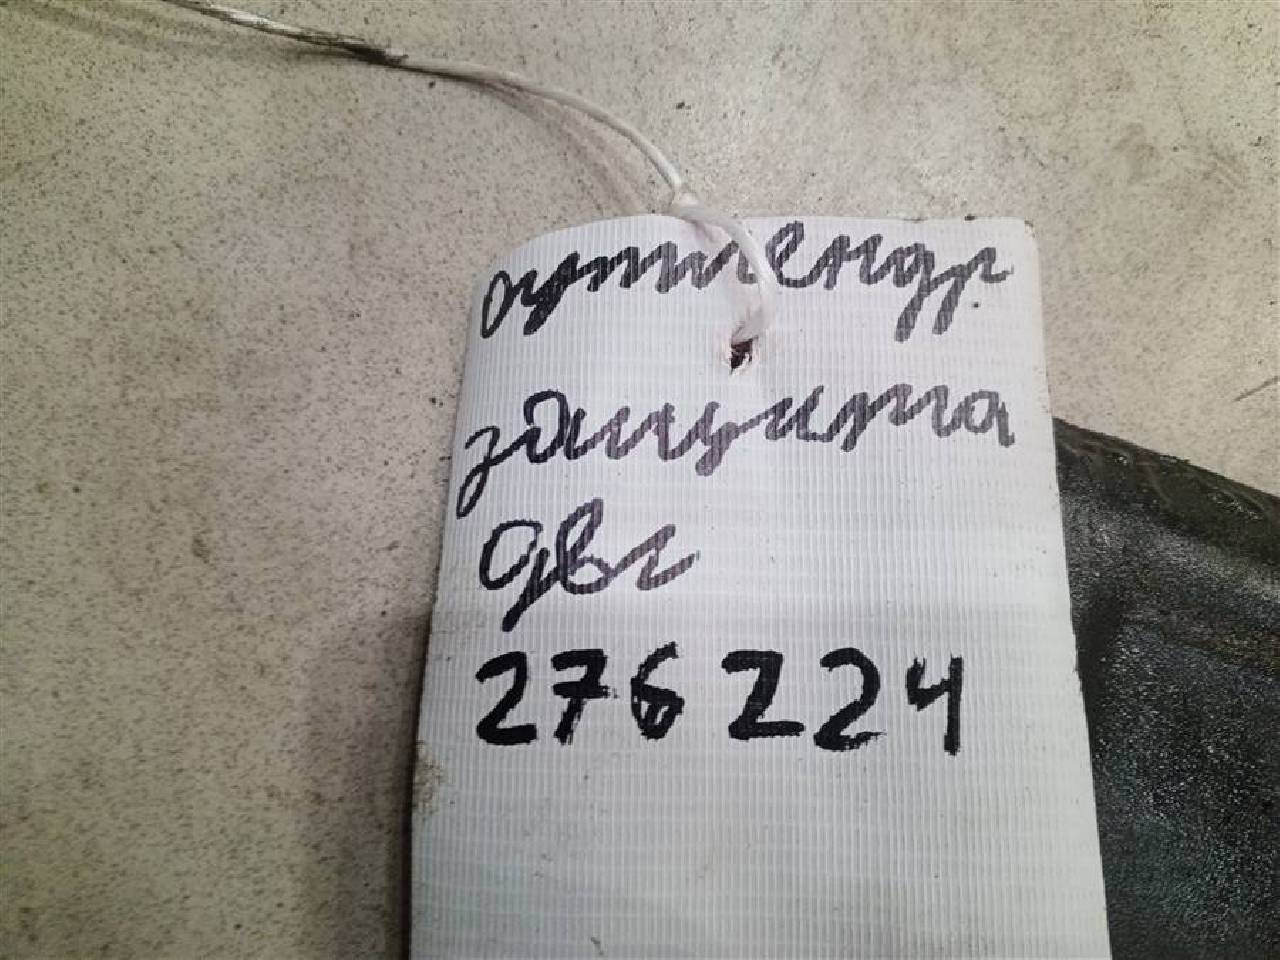 оутлендр
защита
двг
276224